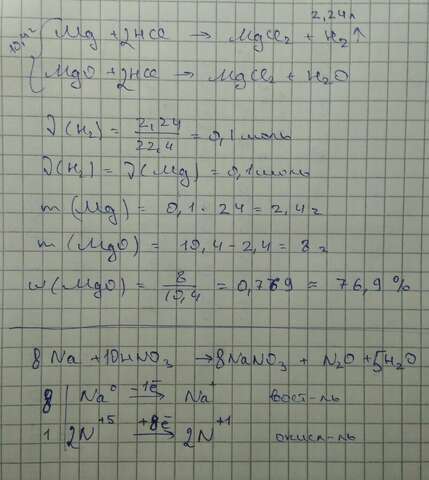 2,24л
10,4г
Mg + 2HCl → MgCl₂ + H₂↑
MgO + 2HCl → MgCl₂ + H₂O
ν(H₂) = 2,24/22,4 = 0,1 моль
ν(H₂) = ν(Mg) = 0,1 моль
m(Mg) = 0,1 · 24 = 2,4 г
m(MgO) = 10,4 - 2,4 = 8 г
ω(MgO) = 8/10,4 = 0,769 ≈ 76,9 %
8Na + 10HNO₃ → 8NaNO₃ + N₂O + 5H₂O
8 | Na⁰ -1ē → Na⁺ вост-ль
1 | 2N⁺⁵ +8ē → 2N⁺¹ окисл-ль